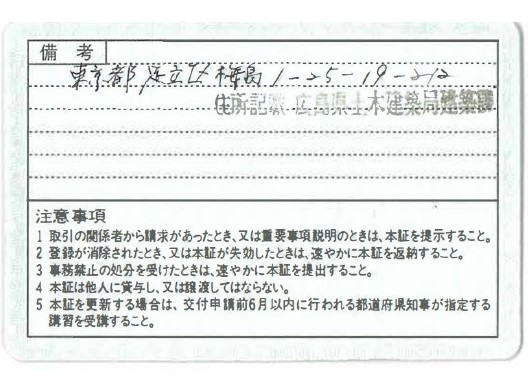 備考
東京都足立区梅島1-25-19-212
住所記載 広島県土木建築局建築課
注意事項
1 取引の関係者から請求があったとき、又は重要事項説明のときは、本証を提示すること。
2 登録が消除されたとき、又は本証が失効したときは、速やかに本証を返納すること。
3 事務禁止の処分を受けたときは、速やかに本証を提出すること。
4 本証は他人に貸与し、又は譲渡してはならない。
5 本証を更新する場合は、交付申請前6月以内に行われる都道府県知事が指定する
講習を受講すること。